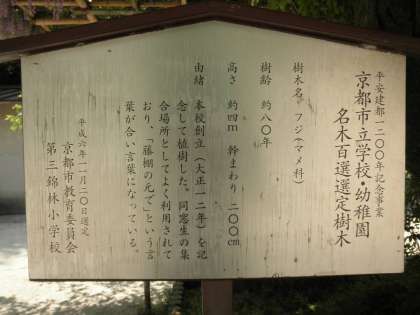 平安建都一二〇〇年記念事業
京都市立学校・幼稚園
名木百選選定樹木
樹木名　フジ(マメ科)
樹齢　約八〇年
高さ　約四m　幹まわり　二〇〇cm
由緒　本校創立(大正一二年)を記
念して植樹した。同窓生の集
合場所としてよく利用されて
おり、「藤棚の元で」という言
葉が合い言葉になっている。
平成六年一月二〇日選定
京都市教育委員会
第三錦林小学校